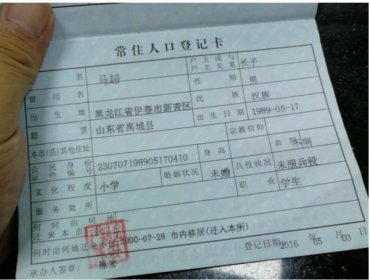 常住人口登记卡
姓名 马超 户主或与户主关系 长子
曾用名 性别 男
出生地 黑龙江省伊春市新青区 民族 汉族
籍贯 山东省禹城县 出生日期 1989-05-17
本市(县)其他住址 宗教信仰
公民身份证件编号 230707198905170410 身高 血型 不明
文化程度 小学 婚姻状况 未婚 兵役状况 未服兵役
服务处所 职业 学生
何时由何地迁来本市(县)
何时由何地迁来本址 2000-07-28 市内移居(迁入本所)
承办人签章: 登记日期: 2016 年 05 月 03 日